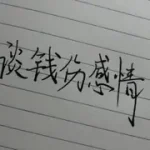 谈钱伤感情